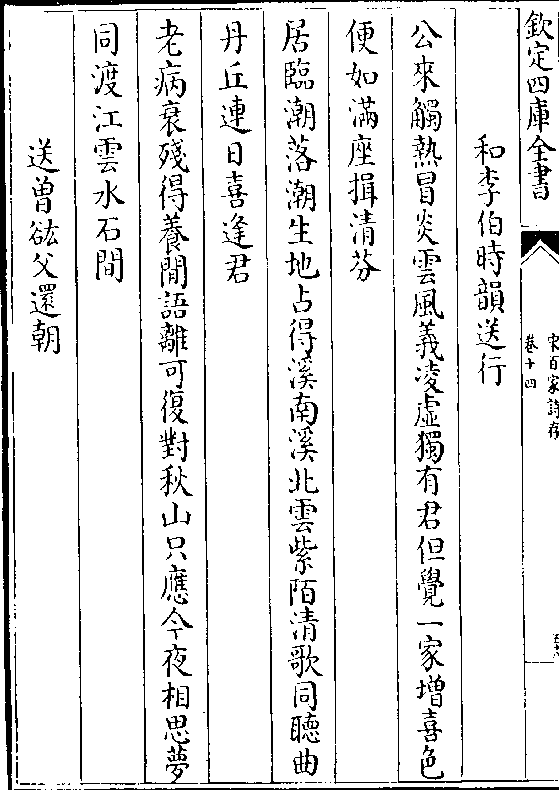 欽定四庫全書
宋百家詩存
卷十四
和李伯時韻送行
公來觸熱冒炎雲風義凌虛獨有君但覺一家增喜色
便如滿座揖清芬
居臨潮落潮生地占得溪南溪北雲紫陌清歌同聽曲
丹丘連日喜逢君
老病衰殘得養閒語離可復對秋山只應今夜相思夢
同渡江雲水石間
送曽紘父還朝